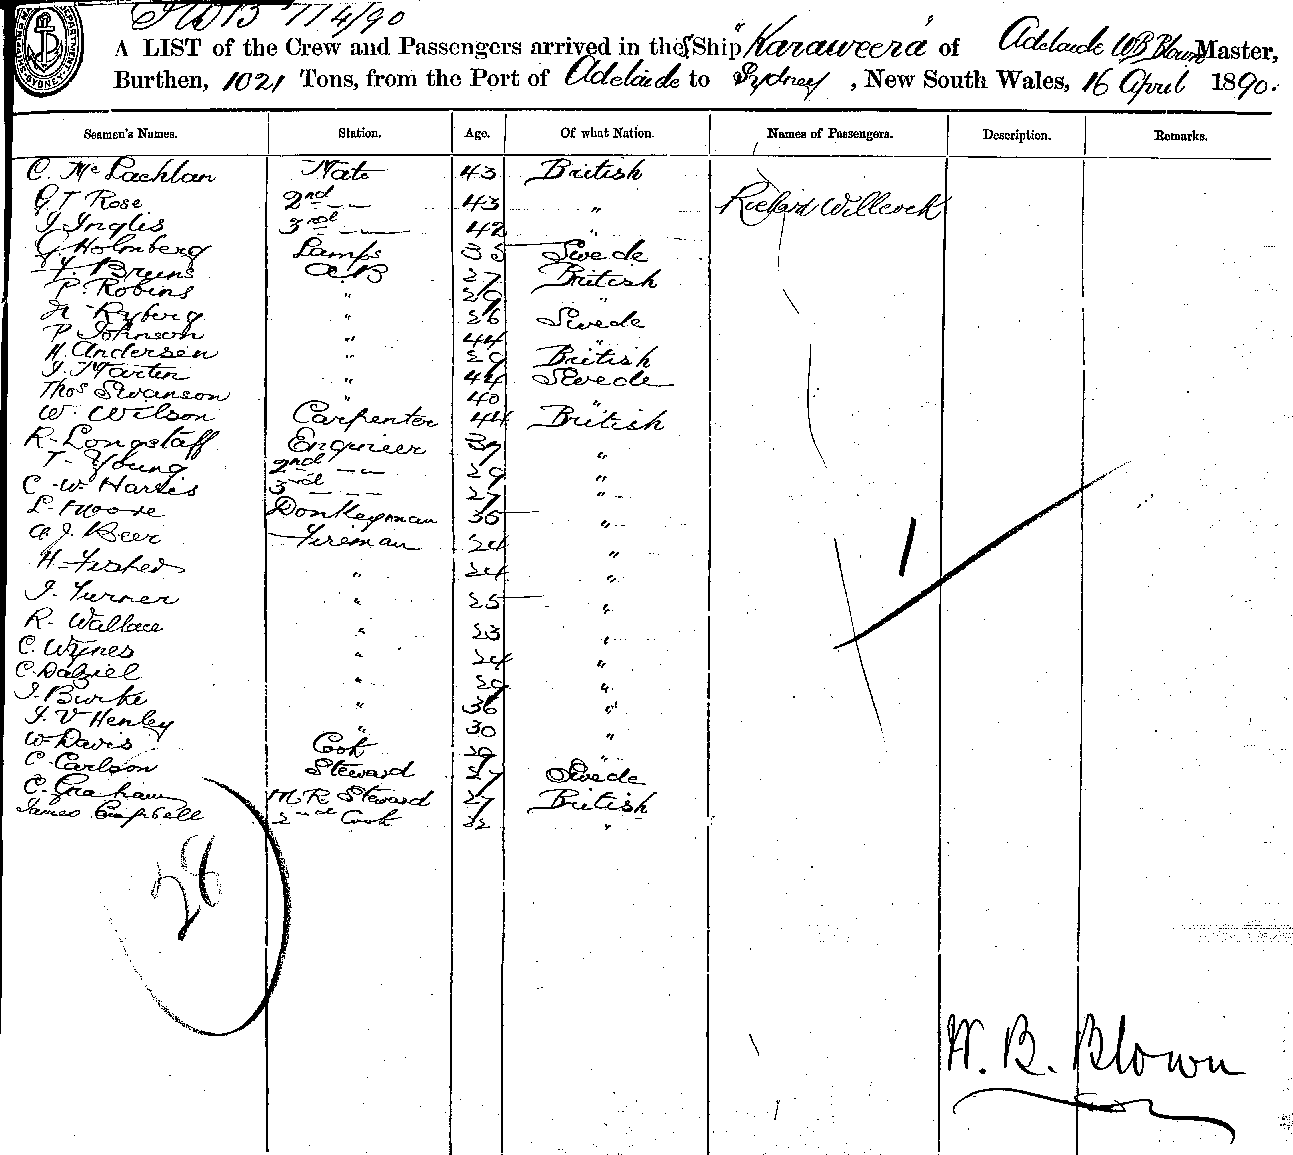 7/4/90
A LIST of the Crew and Passengers arrived in the SS Ship "Karaweera" of Adelaide WB Blown Master,
Burthen, 1021 Tons, from the Port of Adelaide to Sydney, New South Wales, 16 April 1890.
Seamen's Names. Station. Age. Of what Nation. Names of Passengers. Description. Remarks.
C. McLachlan Mate 43 British
G T Rose 2nd —— 43 " Richard Willcock
J Inglis 3rd —— 42 "
Holmberg Lamps 35 Swede
Bruns AB 27 British
P. Robins " 29 "
Ryberg " 26 Swede
P Johnson " 44 "
H. Andersen " 29 British
J. Martin " 44 Swede
Thos Swanson " 40 "
W. Wilson Carpenter 44 British
R. Longstaff Engineer 37 "
T. Young 2nd —— 29 "
C. W. Harris 3rd —— 27 "
L. Moore Donkeyman 35 "
A. J. Beer Fireman 24 "
H Fisher " 24 "
J. Turner " 25 "
R. Wallace " 23 "
C. Wynes " 24 "
C. Dalziel " 29 "
J. Burke " 36 "
J. V Henley " 30 "
W. Davis Cook 29 "
C. Carlson Steward 27 Swede
C. Graham M. R. Steward 27 British
James Campbell 2nd Cook 22 "
28
1
W. B. Blown